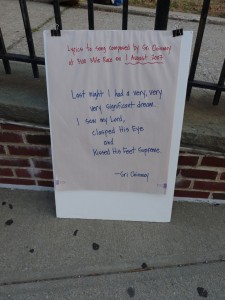 Lyrics to song composed by Sri Chinmoy
at Self Mile Race on 1 August 2007
Last night I had a very, very
very significant dream.
I saw my Lord,
clasped His Eye
and
Kissed His Feet Supreme.
—Sri Chinmoy